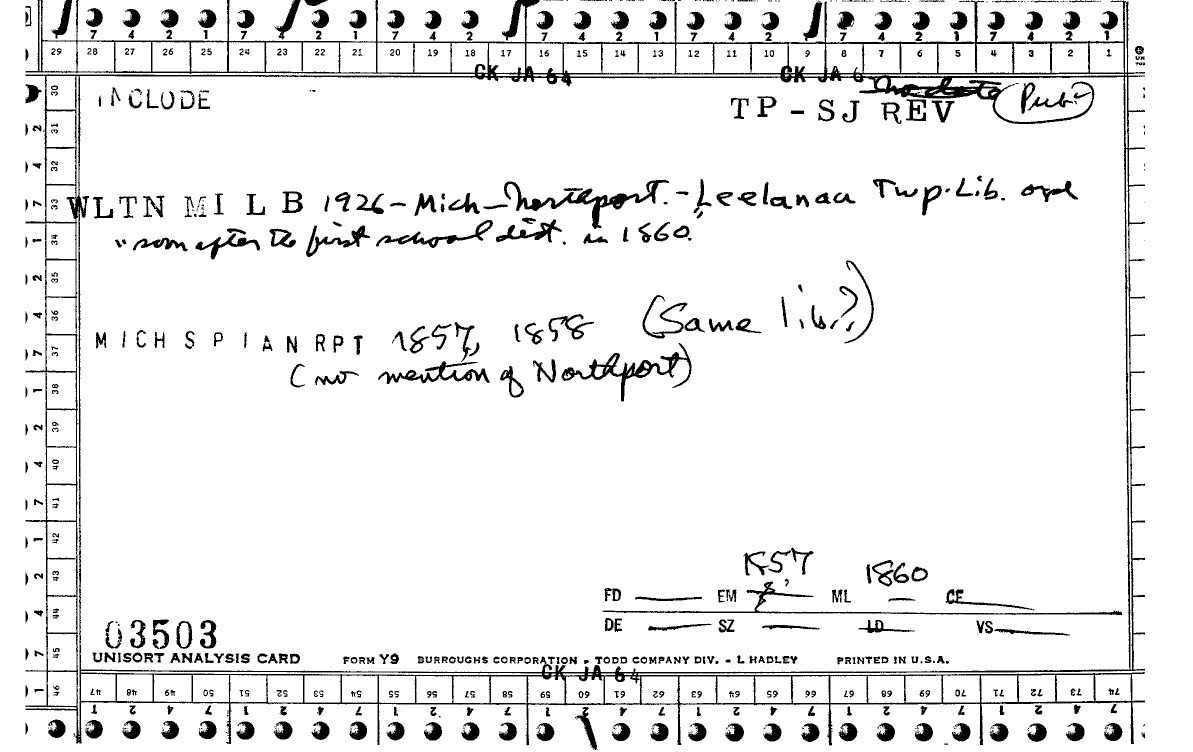 7 4 2 1 7 4 2 1 7 4 2 1 7 4 2 1 7 4 2 1 7 4 2 1 7 4 2 1
29 28 27 26 25 24 23 22 21 20 19 18 17 16 15 14 13 12 11 10 9 8 7 6 5 4 3 2 1
CK JA 64 CK JA 6
INCLUDE
TP - SJ REV Pub?
WLTN MI L B 1926 - Mich - Northport. - Leelanau Twp. Lib. orgd
"soon after the first school dist. in 1860.
MICH S P I A N RPT 1857, 1858 (Same lib.?)
(no mention of Northport)
1857 1860
FD EM ML CE
DE SZ LD VS
03503
UNISORT ANALYSIS CARD FORM Y9 BURROUGHS CORPORATION - TODD COMPANY DIV. - L HADLEY PRINTED IN U.S.A.
CK JA 64
47 48 49 50 51 52 53 54 55 56 57 58 59 60 61 62 63 64 65 66 67 68 69 70 71 72 73 74
1 2 4 7 1 2 4 7 1 2 4 7 1 2 4 7 1 2 4 7 1 2 4 7 1 2 4 7
30 31 32 33 34 35 36 37 38 39 40 41 42 43 44 45 46